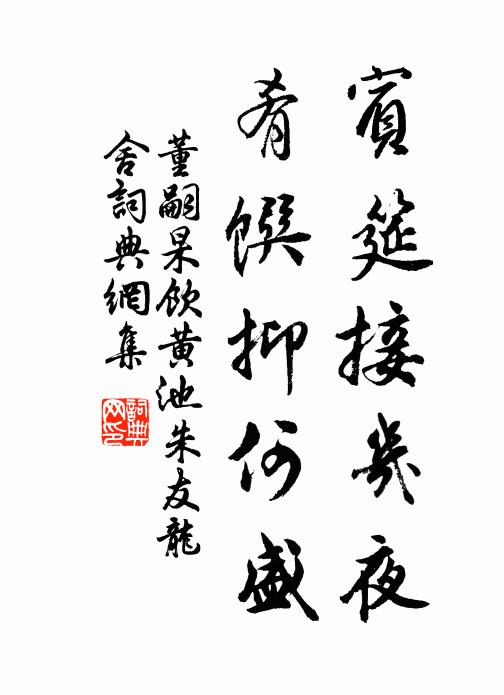 賓筵接幾夜
肴饌抑何盛
董嗣杲飲黃池朱友龍
舍詞典網集
詞典网印